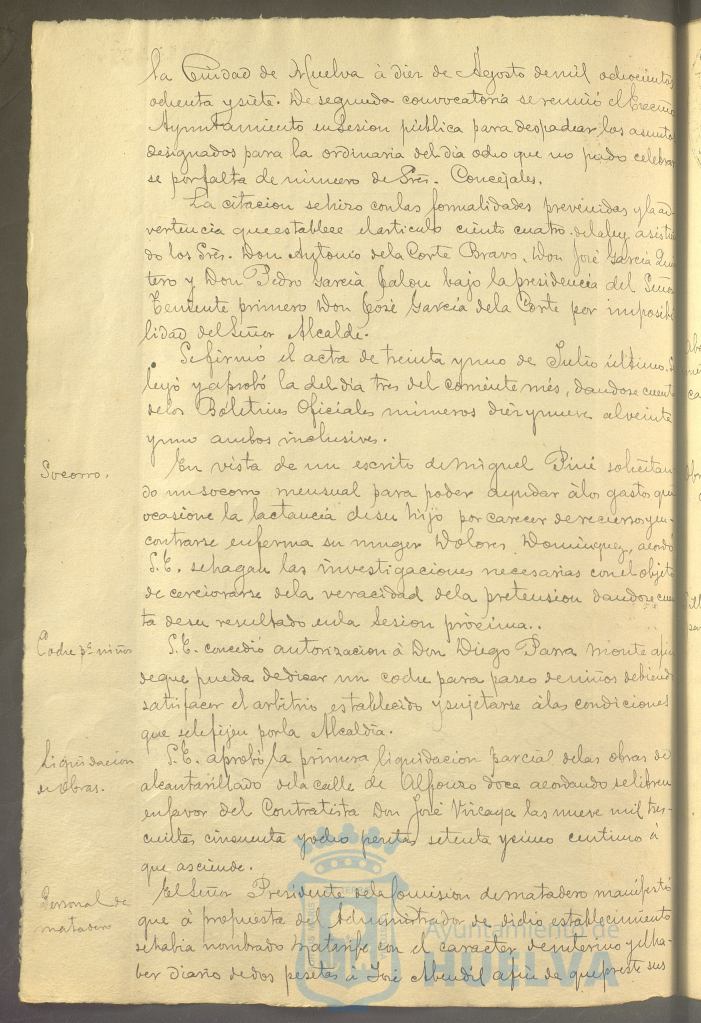 la Ciudad de Huelva à diez de Agosto de mil ochocientos
ochenta y siete. De segunda convocatoria se reunió el Excmo
Ayuntamiento en Sesion pública para despachar los asuntos
designados para la ordinaria del dia ocho que no pudo celebrar
se por falta de número de Sres. Concejales.
La citacion se hizo con las formalidades prevenidas y la ad-
vertencia que establece el articulo ciento cuatro de la ley, asistien
do los Sres. Don Antonio de la Corte Bravo, Don José Garcia Quin
tero y Don Pedro Garcia Jalon bajo la presidencia del Señor
Teniente primero Don José Garcia de la Corte por imposibi
lidad del Señor Alcalde.
Se firmó el acta de treinta y uno de Julio último. Se
leyó y aprobó la del dia tres del corriente més, dandose cuenta
de los Boletines Oficiales números diez y nueve al veinte
y uno ambos inclusives.
Socorro.
En vista de un escrito de Miguel Piné solicitan
do un socorro mensual para poder ayudar à los gastos que
ocasione la lactancia de su hijo por carecer de recursos y en-
contrarse enferma su muger Dolores Dominguez, acordó
S.E. se hagan las investigaciones necesarias con el objeto
de cerciorarse de la veracidad de la pretension dandose cuen
ta de su resultado en la Sesion próxima..
Coche pª niños
S.E. concedió autorizacion à Don Diego Parra Monte a fin
de que pueda dedicar un coche para paseo de niños debiendo
satisfacer el arbitrio establecido y sujetarse à las condiciones
que se le fijen por la Alcaldía.
Liquidacion
de obras.
S.E. aprobó la primera liquidacion parcial de las obras de
alcantarillado de la calle de Alfonso doce acordando se libren
en favor del Contratista Don José Vizcaya las nueve mil tres-
cientas cincuenta y ocho pesetas setenta y cinco centimo à
que asciende.
Personal de
matadero
El Señor Presidente de la Comision de matadero manifestó
que à propuesta del Administrador de dicho establecimiento
se habia nombrado matarife con el caracter de interino y el ha-
ber diario de dos pesetas à José a fin de que preste sus
Ayuntamiento de
HUELVA